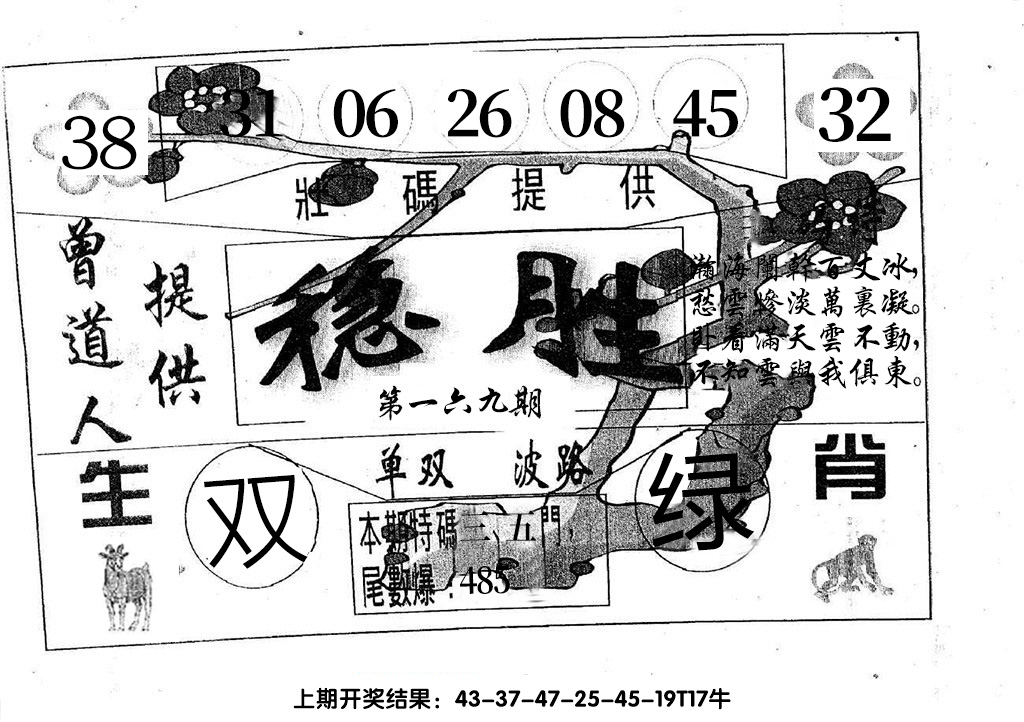 38 31 06 26 08 45 32
壯碼提供
特
曾道人
提供
稳胜
第一六九期
瀚海闌幹百丈冰，
愁雲慘淡萬裏凝。
卧看滿天雲不動，
不知雲與我俱東。
生肖
单双 波路
双
绿
本期特碼三、五門，
尾數爆：485
上期开奖结果：43-37-47-25-45-19T17牛